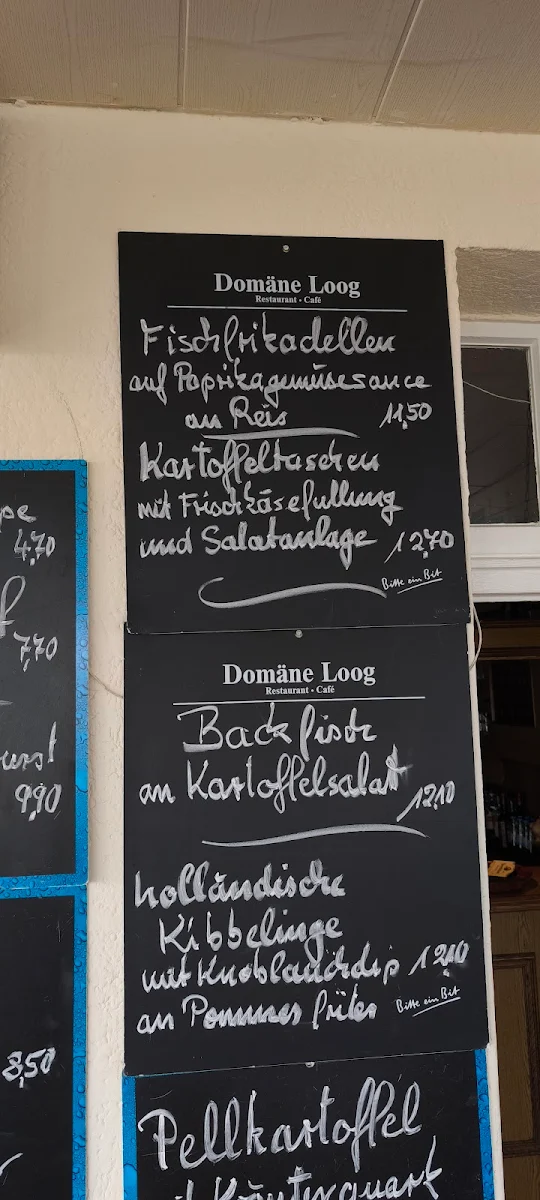 Domäne Loog
Restaurant • Café
Fischfrikadellen
auf Paprikagemüsesauce
an Reis 11,50
Kartoffeltaschen
mit Frischkäsefüllung
und Salatanlage 12,70
Bitte ein Bit
Domäne Loog
Restaurant • Café
Backfisch
an Kartoffelsalat
12,10
holländische
Kibbelinge
mit Knoblauchdip 12,10
an Pommes frites
Bitte ein Bit
Pellkartoffel
Kräuterquark
4,70
7,70
9,90
8,50